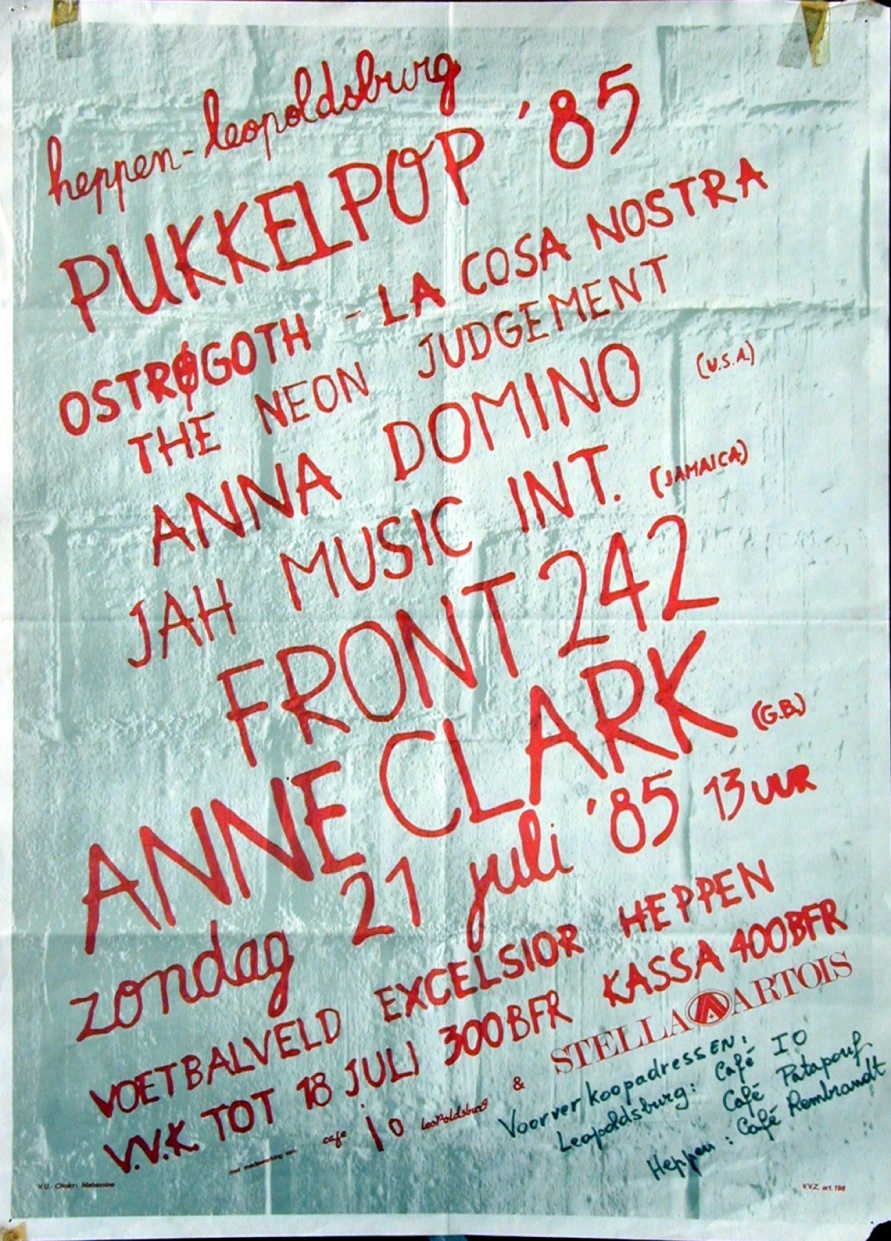 heppen-leopoldsburg
PUKKELPOP '85
OSTROGOTH - LA COSA NOSTRA
THE NEON JUDGEMENT
ANNA DOMINO (U.S.A.)
JAH MUSIC INT. (JAMAICA)
FRONT 242
ANNE CLARK (G.B.)
zondag 21 juli '85 13 UUR
VOETBALVELD EXCELSIOR HEPPEN
V.V.K TOT 18 JULI 300BFR KASSA 400BFR
met medewerking van cafe io leopoldsburg & STELLA ARTOIS
Voorverkoopadressen:
Leopoldsburg: Café IO
Café Patapouf
Heppen: Café Rembrandt
V.U. Chokri Mahassine
V.V.Z. art. 198